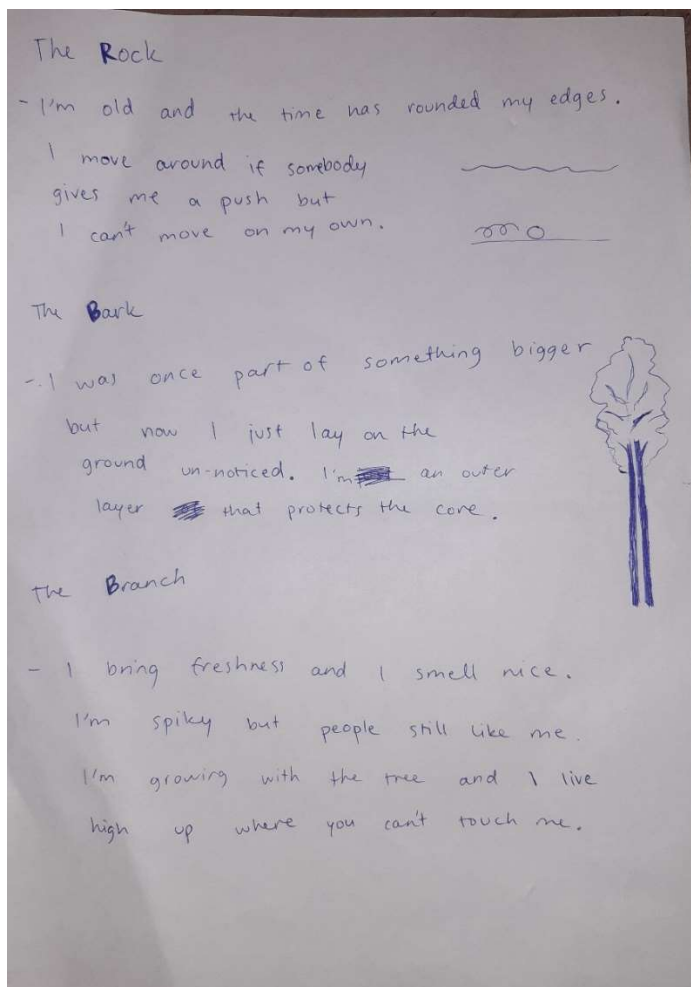 The Rock
- I'm old and the time has rounded my edges.
I move around if somebody
gives me a push but
I can't move on my own.
The Bark
- I was once part of something bigger
but now I just lay on the
ground un-noticed. I'm an outer
layer that protects the core.
The Branch
- I bring freshness and I smell nice.
I'm spiky but people still like me.
I'm growing with the tree and I live
high up where you can't touch me.